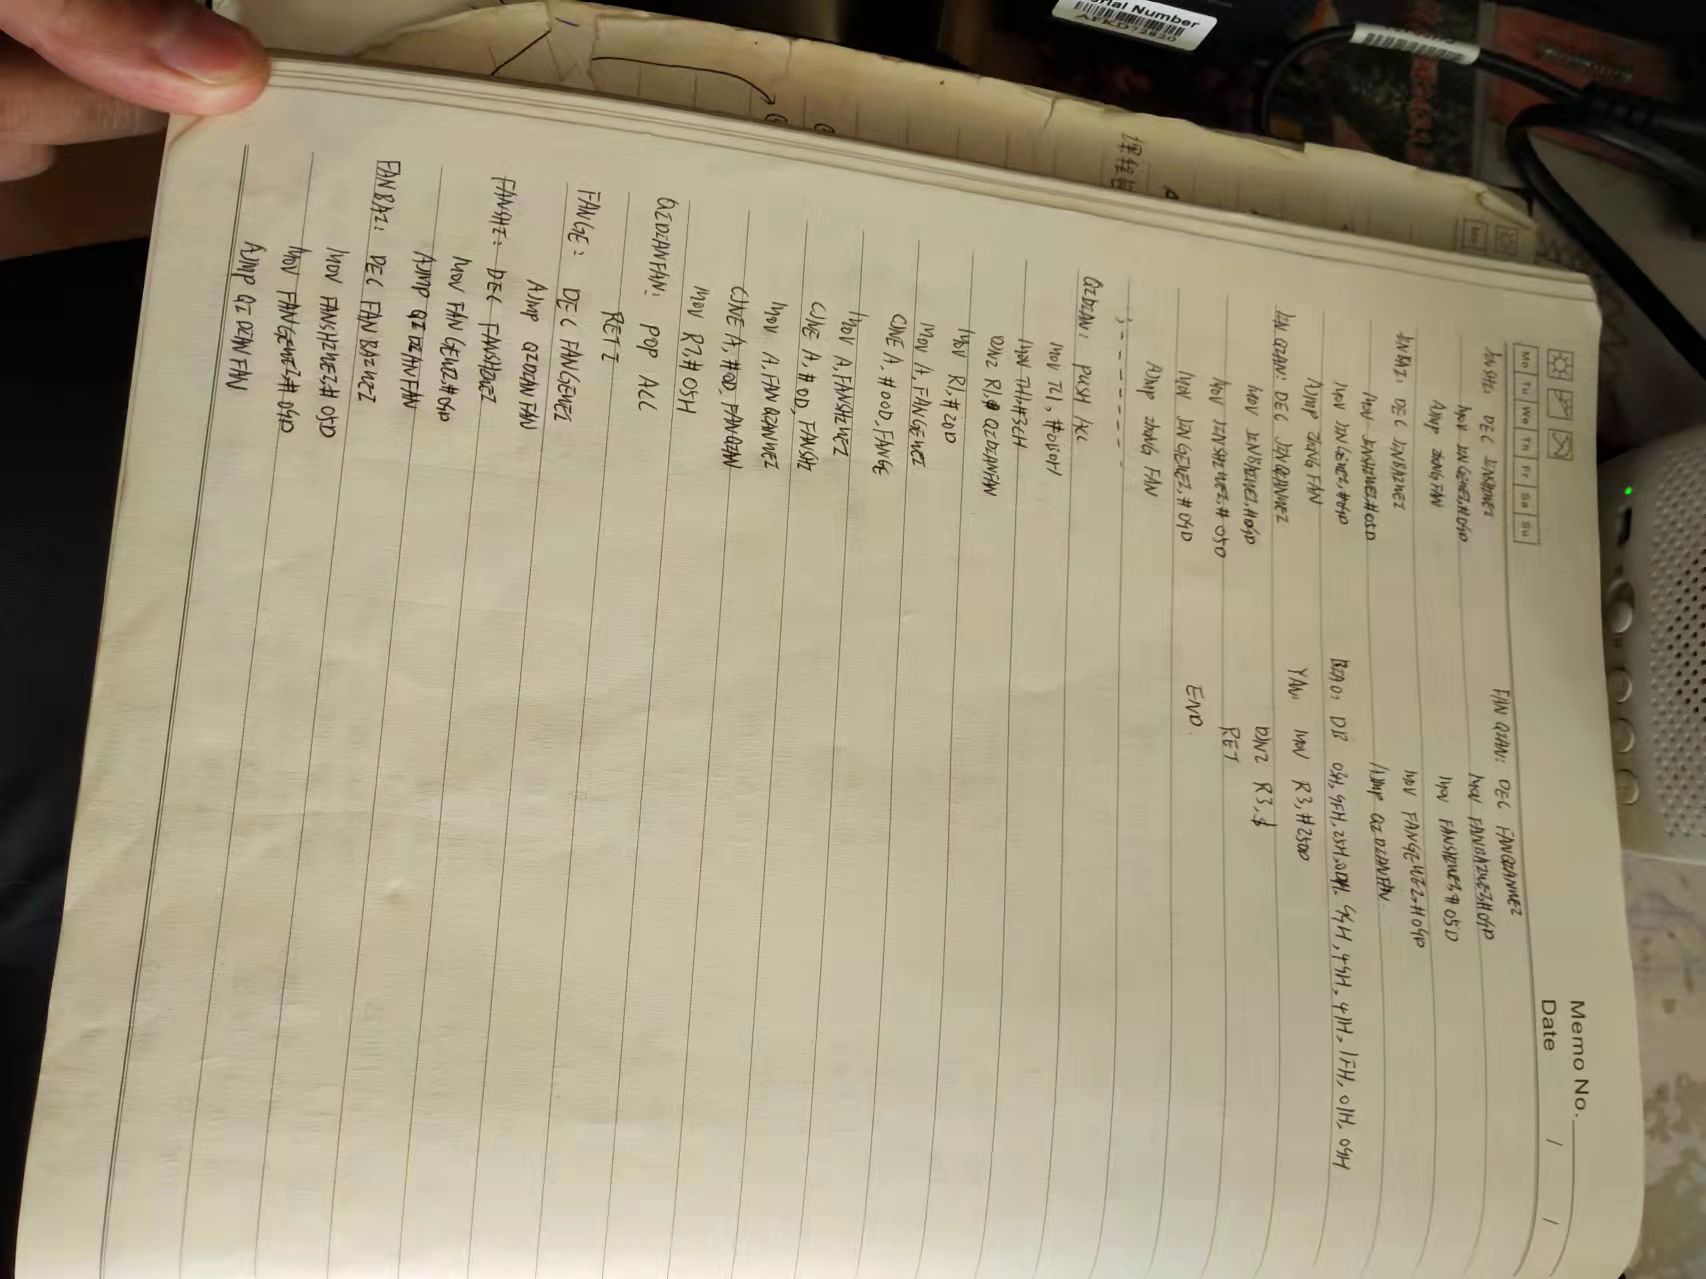 Serial Number
Memo No.
Date / /
Mo Tu We Th Fr Sa Su
JINSHI: DEC JINSHIWEI
MOV JINGEWEI,#09D
AJMP ZHONGFAN
JINBAI: DEC JINBAIWEI
MOV JINSHIWEI,#05D
MOV JINGEWEI,#09D
AJMP ZHONGFAN
JINQIAN: DEC JINQIANWEI
MOV JINBAIWEI,#09D
MOV JINSHIWEI,#05D
MOV JINGEWEI,#09D
AJMP ZHONGFAN
;--------
QIDIAN: PUSH ACC
MOV TL1,#0B0H
MOV TH1,#3CH
DJNZ R1,QIDIANFAN
MOV R1,#20D
MOV A,FANGEWEI
CJNE A,#00D,FANGE
MOV A,FANSHIWEI
CJNE A,#0D,FANSHI
MOV A,FANQIANWEI
CJNE A,#0D,FANQIAN
MOV R7,#05H
QIDIANFAN: POP ACC
RETI
FANGE: DEC FANGEWEI
AJMP QIDIANFAN
FANSHI: DEC FANSHIWEI
MOV FANGEWEI,#09D
AJMP QIDIANFAN
FANBAI: DEC FANBAIWEI
MOV FANSHIWEI,#05D
MOV FANGEWEI,#09D
AJMP QIDIANFAN
FANQIAN: DEC FANQIANWEI
MOV FANBAIWEI,#09D
MOV FANSHIWEI,#05D
MOV FANGEWEI,#09D
AJMP QIDIANFAN.
BIAO: DB 03H,9FH,25H,0DH,99H,49H,41H,1FH,01H,09H
YAN: MOV R3,#250D
DJNZ R3,$
RET
END.